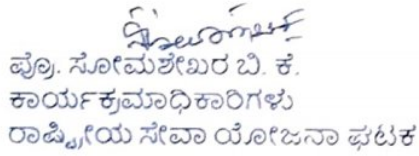 ಪ್ರೊ. ಸೋಮಶೇಖರ ಬಿ. ಕೆ.
ಕಾರ್ಯಕ್ರಮಾಧಿಕಾರಿಗಳು
ರಾಷ್ಟ್ರೀಯ ಸೇವಾ ಯೋಜನಾ ಘಟಕ